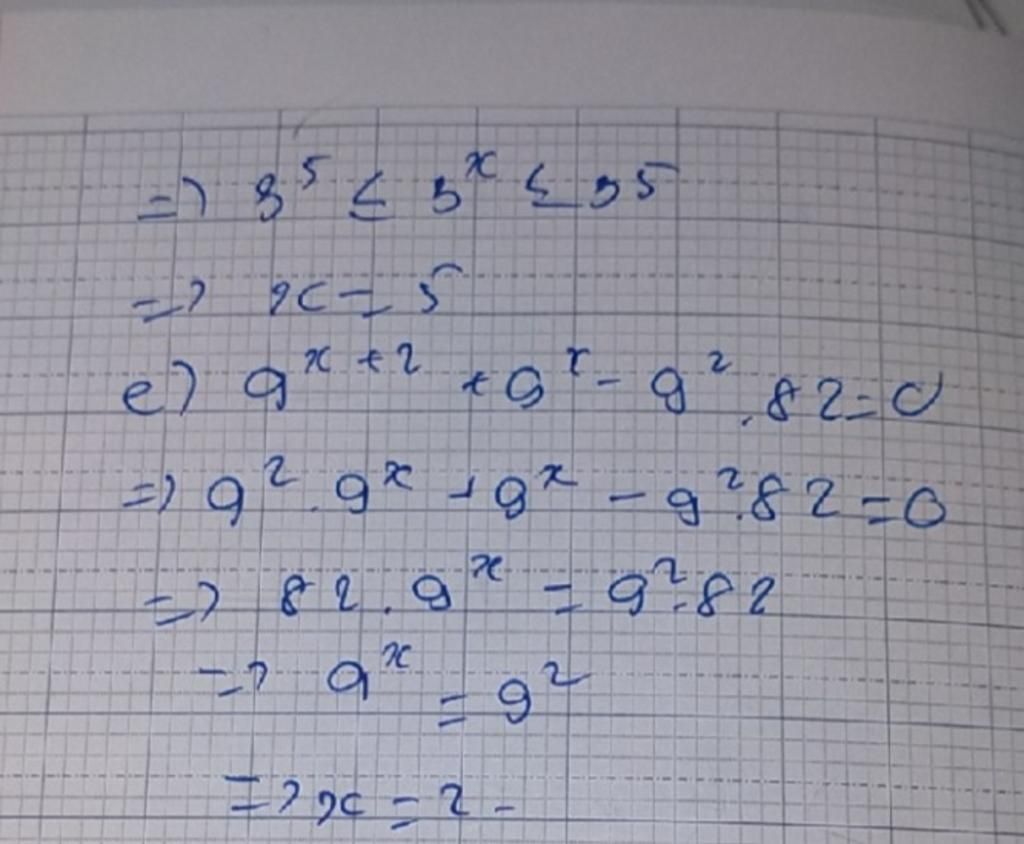 => 3^5 ≤ 3^x ≤ 3^5
=> x = 5
e) 9^{x+2} + 9^x - 9^2 . 82 = 0
=> 9^2 . 9^x + 9^x - 9^2 . 82 = 0
=> 82 . 9^x = 9^2 . 82
=> 9^x = 9^2
=> x = 2 -